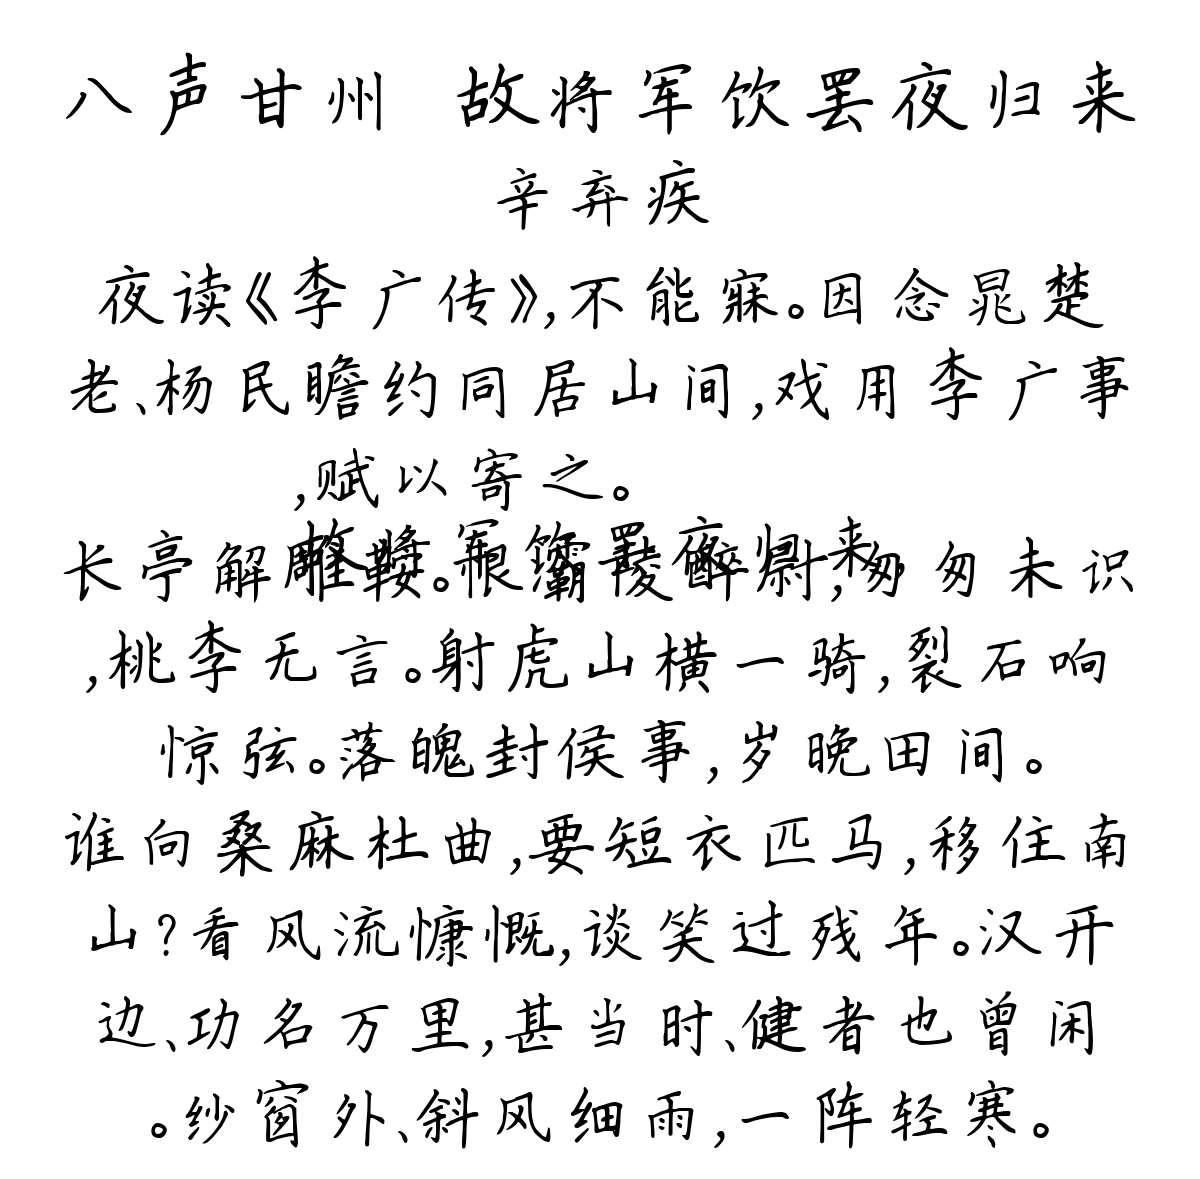 八声甘州 故将军饮罢夜归来
辛弃疾
夜读《李广传》,不能寐。因念晁楚
老、杨民瞻约同居山间,戏用李广事
,赋以寄之。
故将军饮罢夜归来,
长亭解雕鞍。恨灞陵醉尉,匆匆未识
,桃李无言。射虎山横一骑,裂石响
惊弦。落魄封侯事,岁晚田间。
谁向桑麻杜曲,要短衣匹马,移住南
山?看风流慷慨,谈笑过残年。汉开
边、功名万里,甚当时、健者也曾闲
。纱窗外、斜风细雨,一阵轻寒。